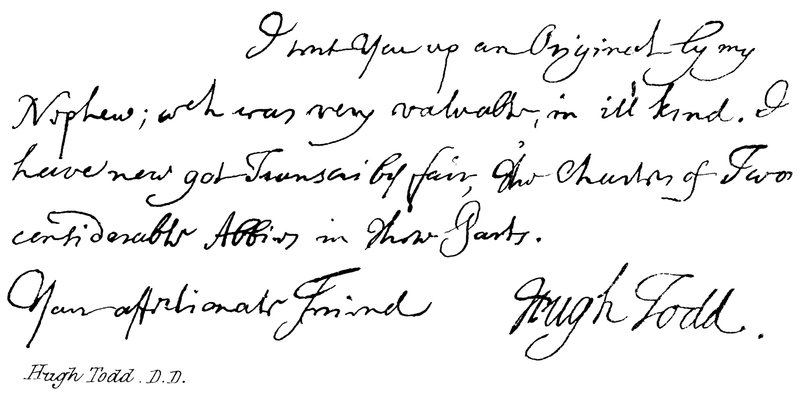 I sent You up an Originel by my
Nephew; wch was very valuable, in it's kind. I
have now got Transcrib'd fair, the Charters of Two
considerable Abbies in those Parts.
Your affectionate Friend Hugh Todd.
Hugh Todd. D.D.